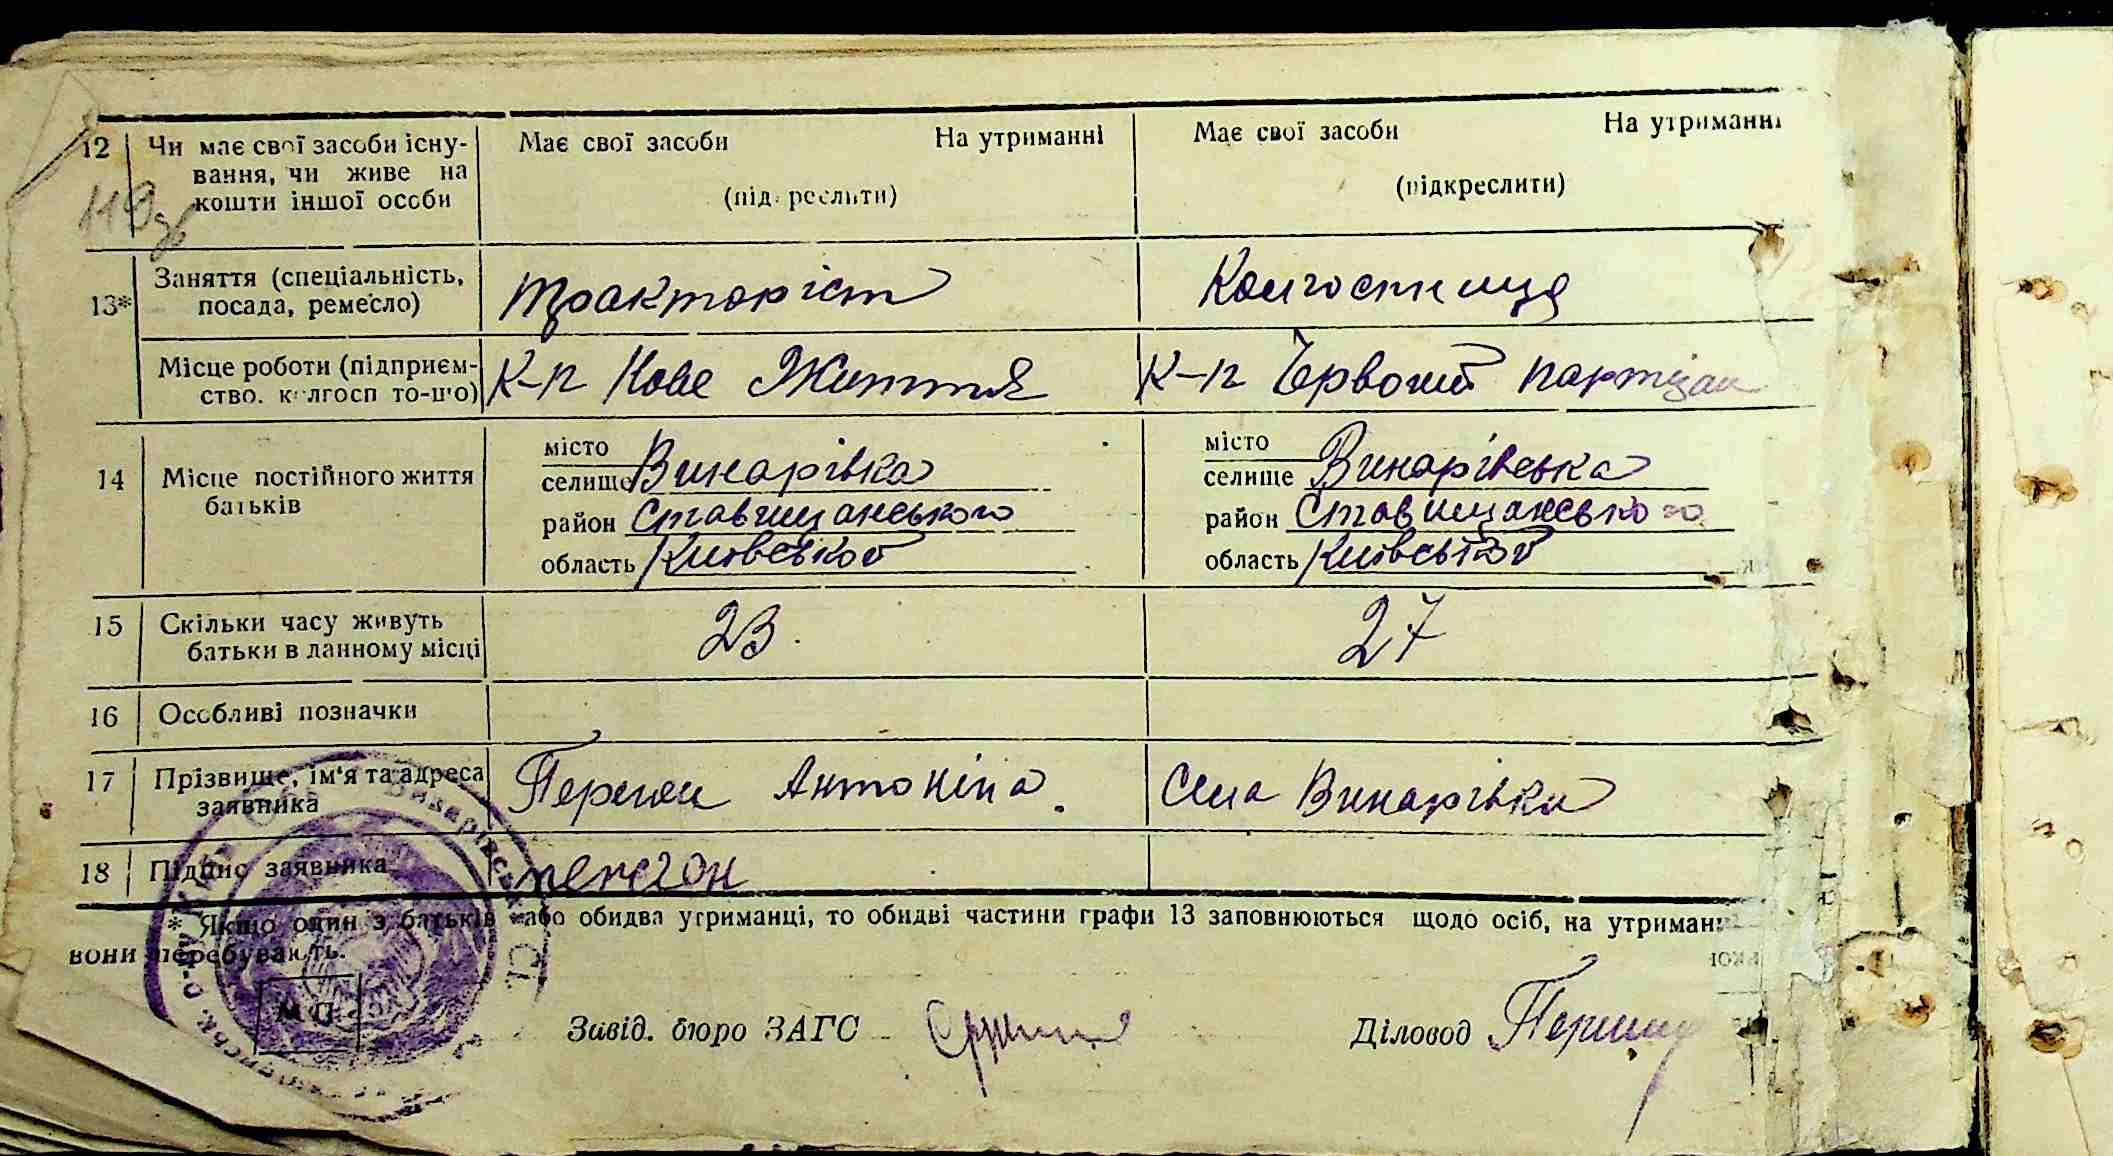 12 Чи має свої засоби існу- Має свої засоби На утриманні Має свої засоби На утриманні
вання, чи живе на
кошти іншої особи (підкреслити) (підкреслити)
13* Заняття (спеціальність, Тракторіст Колгоспниця
посада, ремесло)
Місце роботи (підприєм- К-п Нове Життя К-п Червоний партізан
ство, колгосп то-що)
14 Місце постійного життя місто місто
батьків селище Винарівка селище Винарівська
район Ставищанського район Ставищанського
область Київської область Київської
15 Скільки часу живуть 23. 27
батьки в данному місці
16 Особливі позначки
17 Прізвище, ім'я та адреса Антоніна. Села Винарівка
заявника
18 Підпис заявника
* Якщо один з батьків або обидва утриманці, то обидві частини графи 13 заповнюються щодо осіб, на утриманні
вони перебувають.
М П
Завід. бюро ЗАГС Діловод